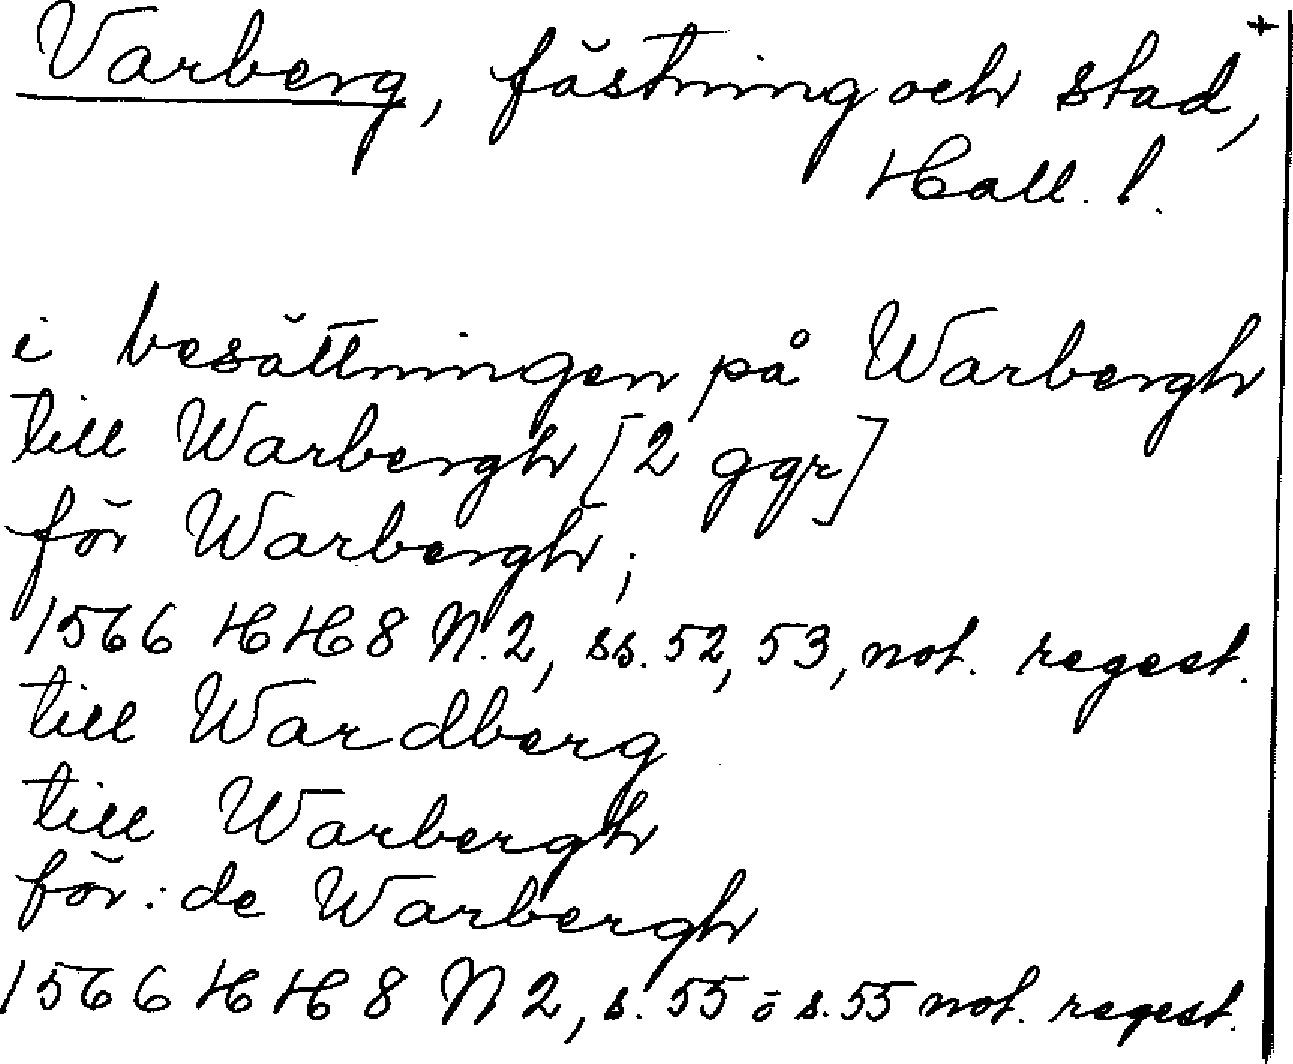 Varberg, fästning och stad, +
Hall. l.
i besättningen på Warbergh
till Warbergh [2 ggr]
för Warbergh;
1566 HH8 N.2, ss. 52, 53, not. regest.
till Wardberg
till Warbergh
för: de Warbergh
1566 HH8 N 2, s. 55 ö s. 55 not. regest.